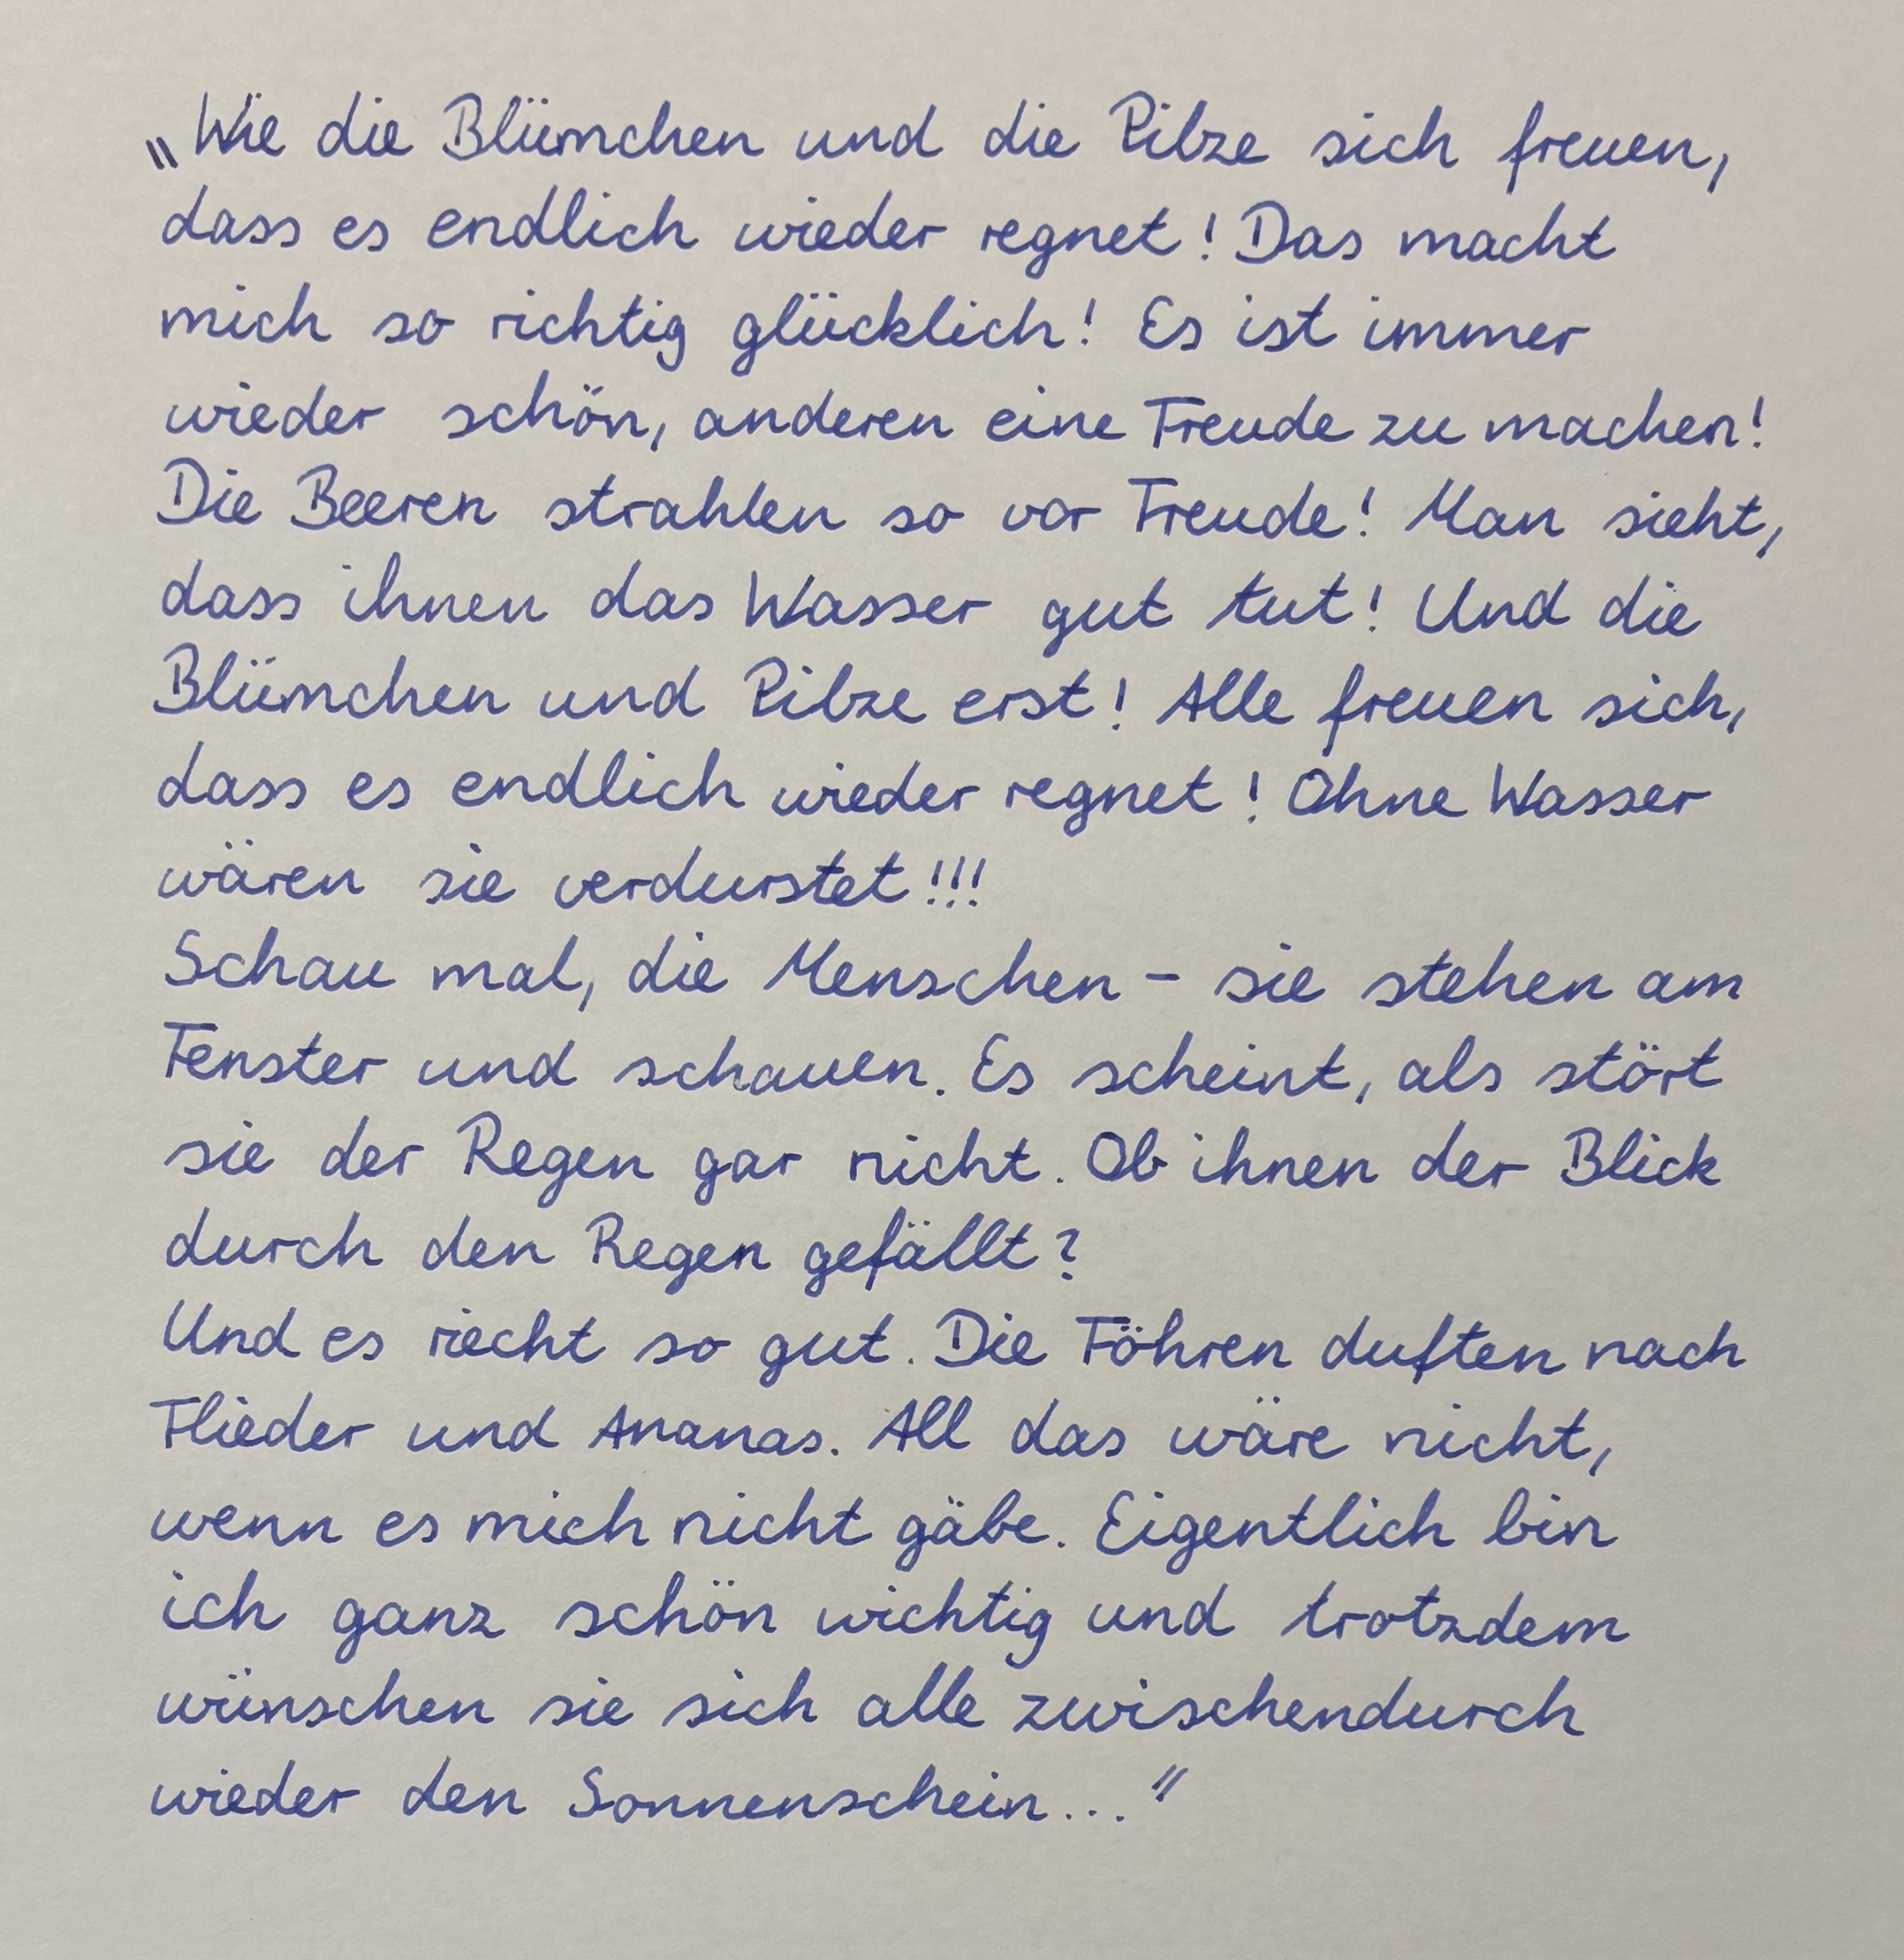 „Wie die Blümchen und die Pilze sich freuen,
dass es endlich wieder regnet! Das macht
mich so richtig glücklich! Es ist immer
wieder schön, anderen eine Freude zu machen!
Die Beeren strahlen so vor Freude! Man sieht,
dass ihnen das Wasser gut tut! Und die
Blümchen und Pilze erst! Alle freuen sich,
dass es endlich wieder regnet! Ohne Wasser
wären sie verdurstet!!!
Schau mal, die Menschen - sie stehen am
Fenster und schauen. Es scheint, als stört
sie der Regen gar nicht. Ob ihnen der Blick
durch den Regen gefällt?
Und es riecht so gut. Die Föhren duften nach
Flieder und Ananas. All das wäre nicht,
wenn es mich nicht gäbe. Eigentlich bin
ich ganz schön wichtig und trotzdem
wünschen sie sich alle zwischendurch
wieder den Sonnenschein..."